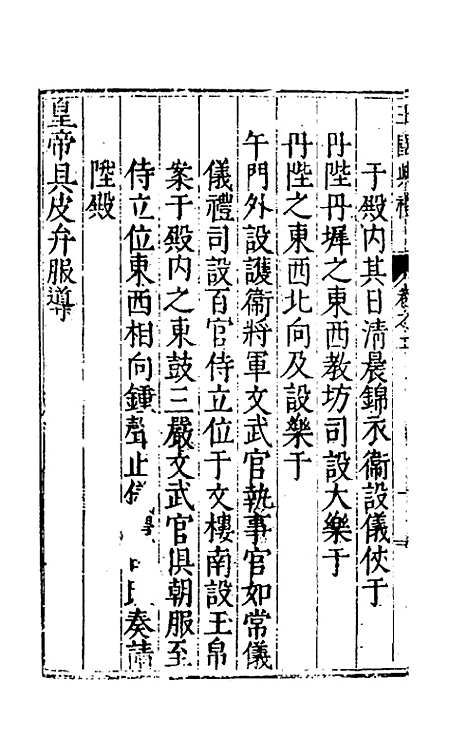 王國典禮 卷之五
于殿内其日清晨錦衣衞設儀仗于
丹陛丹墀之東西教坊司設大樂于
丹陛之東西北向及設樂于
午門外設護衞將軍文武官執事官如常儀
儀禮司設百官侍立位于文樓南設玉帛
案于殿内之東鼓三嚴文武官俱朝服至
侍立位東西相向鍾聲止 奏請
陞殿
皇帝具皮弁服導